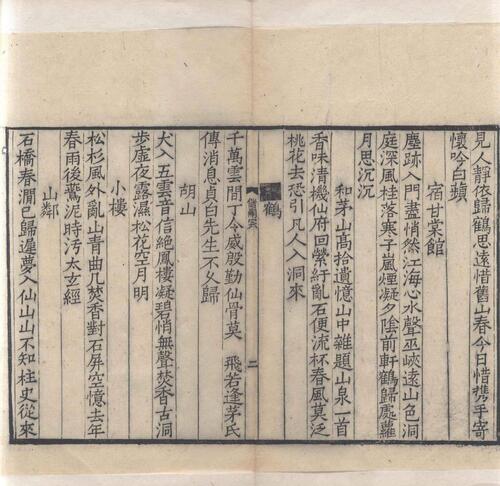 見人靜依歸鶴思遠惜舊山春今日惜攜手寄
懷吟白蘋
宿甘棠館
塵跡入門盡悄然江海心水聲巫峽遠山色洞
庭深風桂落寒子嵐煙凝夕陰前軒鶴歸處蘿
月思沉沉
和茅山高拾遺憶山中雜題山泉一首
香味清機仙府回縈紆亂石便流杯春風莫泛
桃花去恐引凡人入洞來
鶴
二
千萬雲間丁令威殷勤仙骨莫 飛若逢茅氏
傳消息貞白先生不乆歸
胡山
犬入五雲音信絕鳳樓凝碧悄無聲焚香古洞
步虛夜露濕松花空月明
小樓
松杉風外亂山青曲几焚香對石屏空憶去年
春雨後鷰泥時汚太玄經
山鄰
石橋春澗已歸遲夢入仙山山不知柱史從來